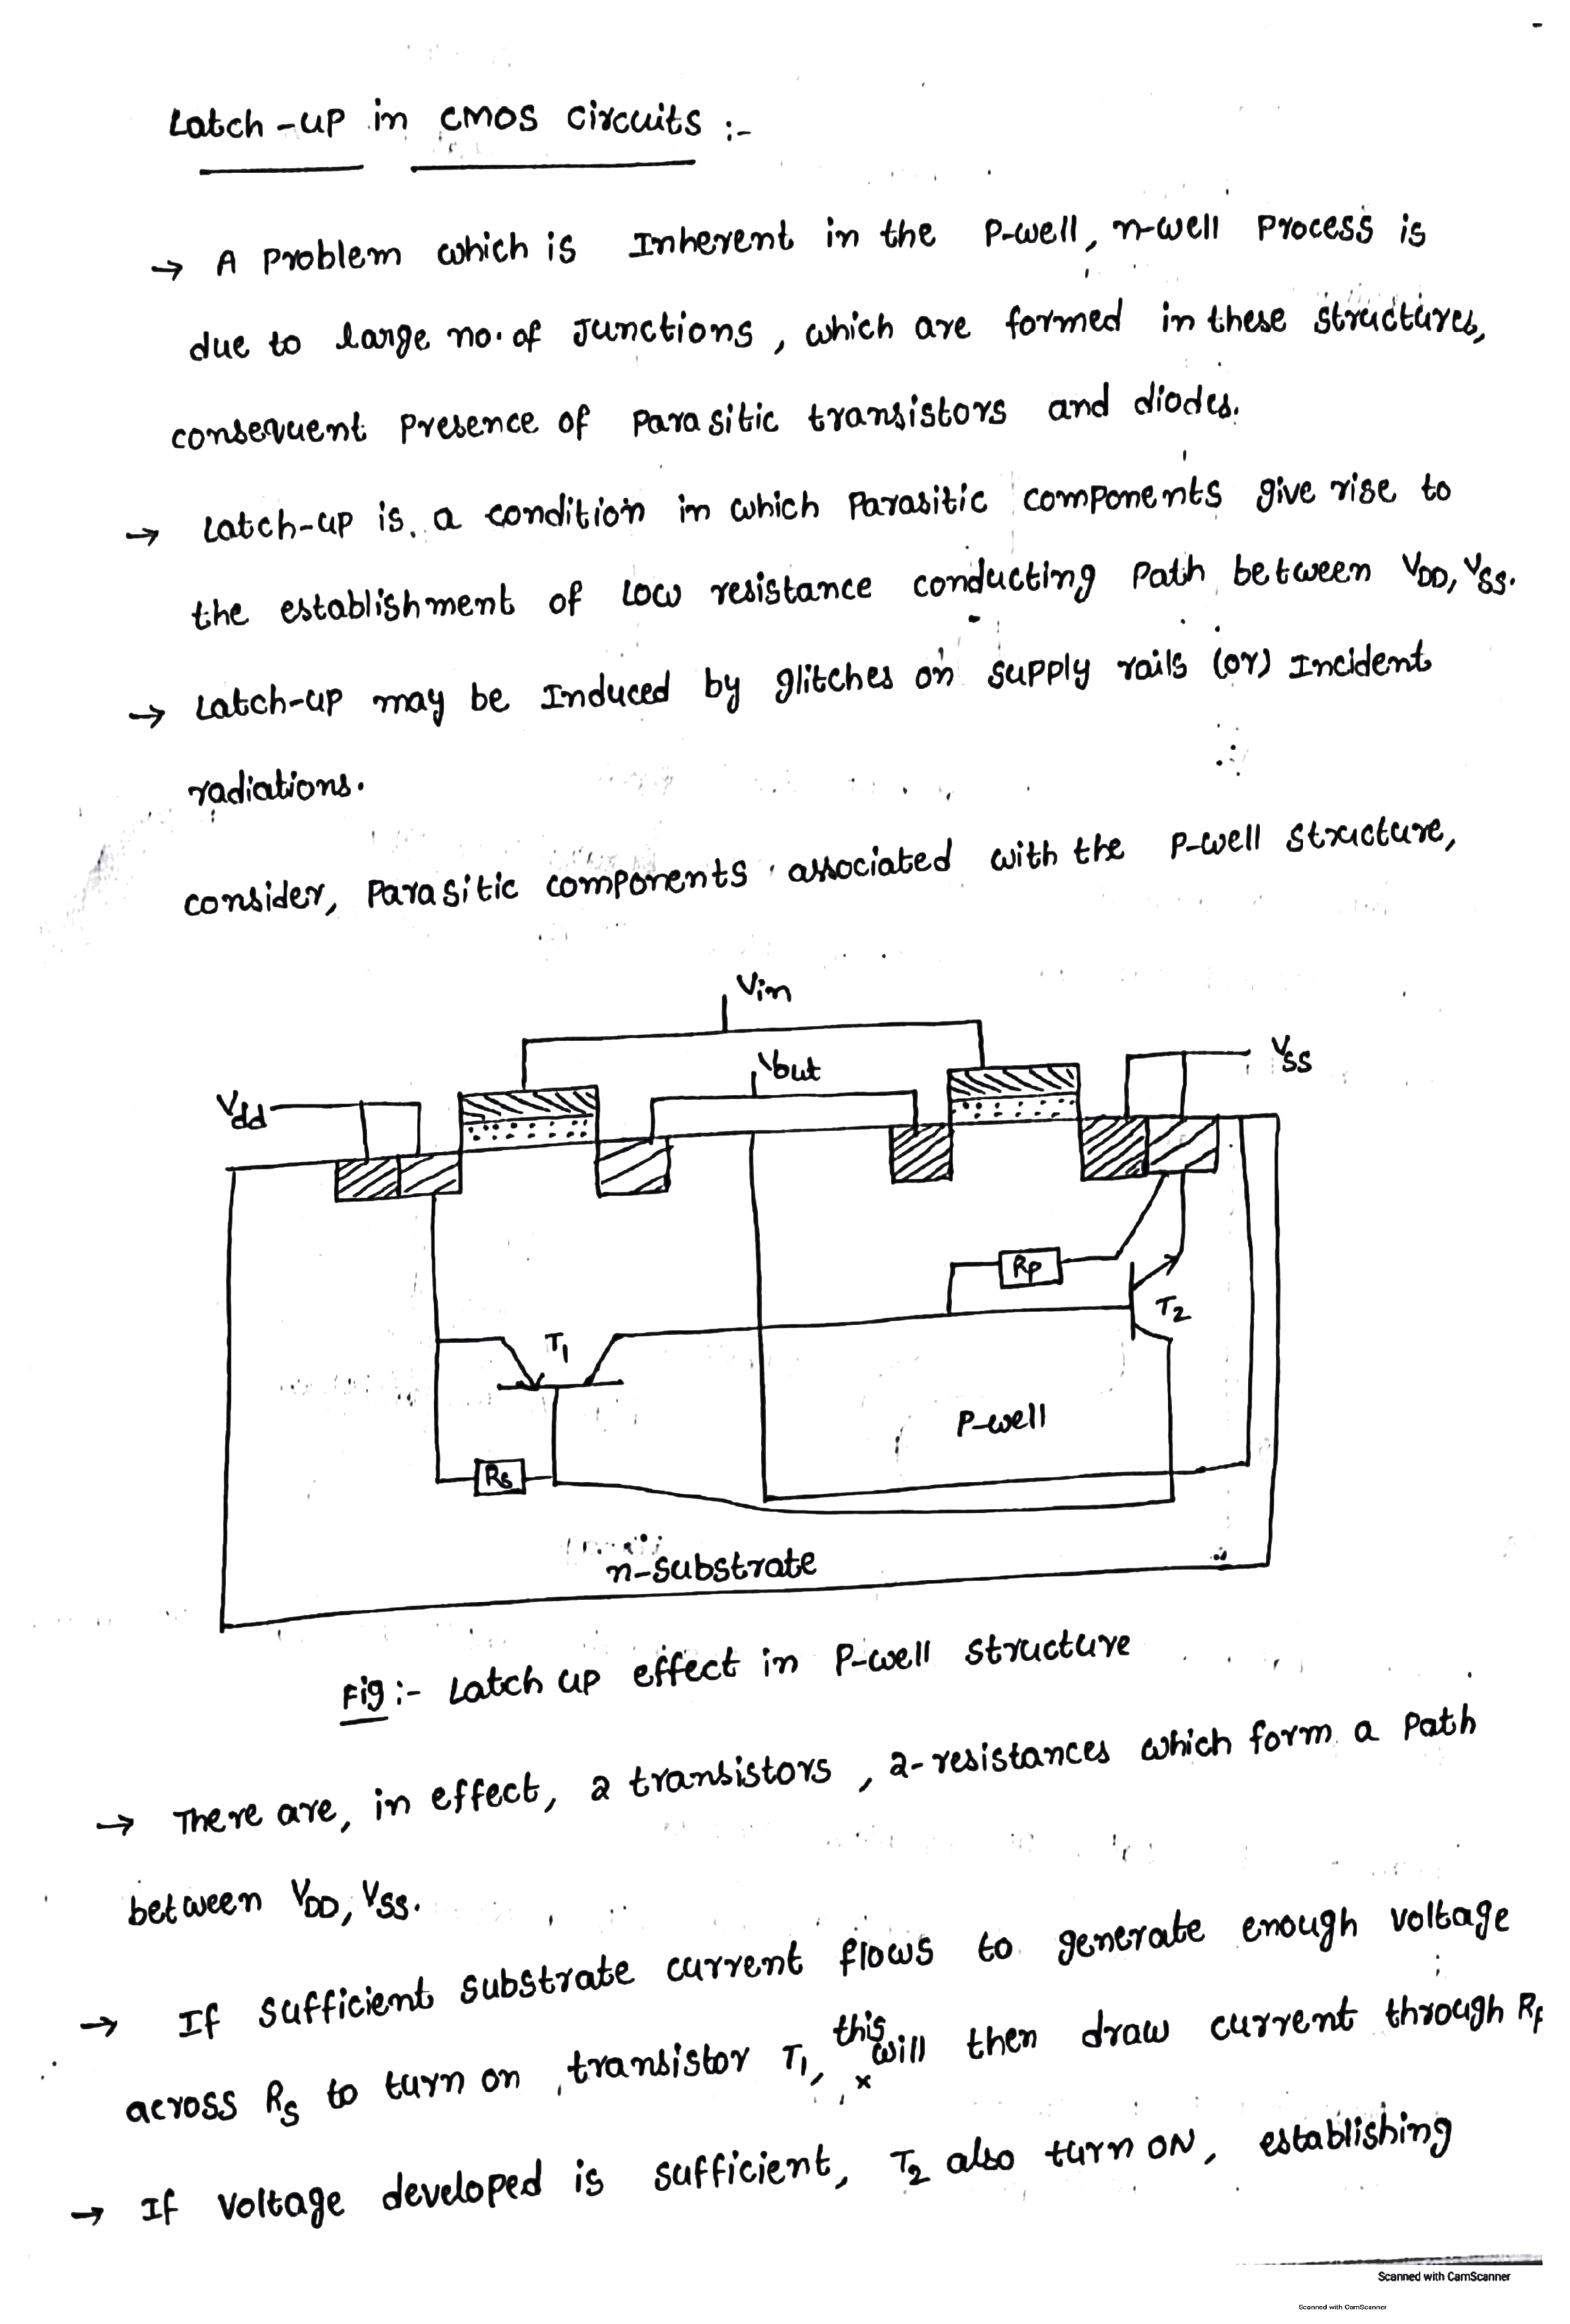 Latch-up in CMOS circuits :-
→ A problem which is Inherent in the P-well, n-well process is
due to large no. of Junctions, which are formed in these structures,
consequent presence of parasitic transistors and diodes.
→ Latch-up is a condition in which Parasitic components give rise to
the establishment of Low resistance conducting Path between VDD, VSS.
→ Latch-up may be Induced by glitches on supply rails (or) Incident
radiations.
consider, Parasitic components associated with the P-well structure,
Vin
Vout
VSS
Vdd
Rp
T2
T1
P-well
Rs
n-substrate
Fig :- Latch up effect in P-well structure
→ There are, in effect, 2 transistors, 2-resistances which form a Path
between VDD, VSS.
→ If sufficient substrate current flows to generate enough voltage
across RS to turn on transistor T1, this will then draw current through RP
→ If voltage developed is sufficient, T2 also turn ON, establishing
Scanned with CamScanner
Scanned with CamScanner